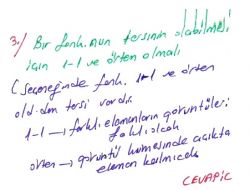 3-) Bir fonk.nun tersinin olabilmesi
için 1-1 ve örten olmalı
C seçeneğinde fonk. 1-1 ve örten
old.dan tersi vardır.
1-1 → farklı elemanların görüntüleri
farklı olcak
örten → görüntü kümesinde açıkta
eleman kalmıcak
CEVAP:C